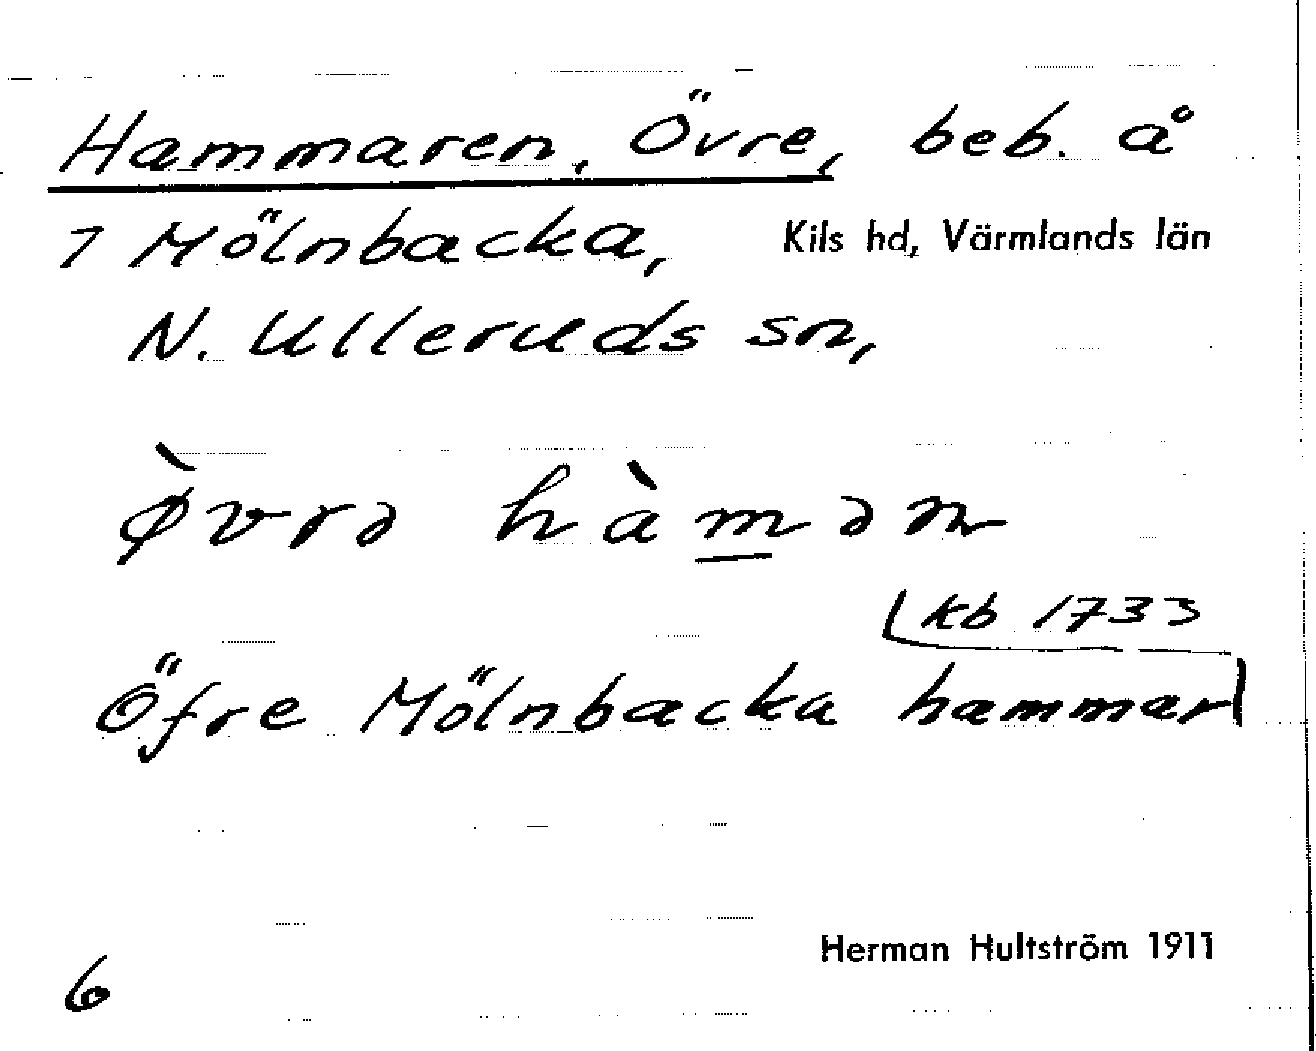 Hammaren, Övre, beb. å
7 Mölnbacka, Kils hd, Värmlands län
N. Ulleruds sn,
ø̀vrə hàm̲ən
kb 1733
Öfre Mölnbacka hammar
Herman Hultström 1911
6